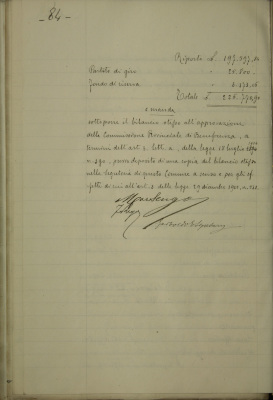 -84-
Riporto £ 197.997,80
Partite di giro " 20.800 -
Fondo di riserva "
Totale £
e manda
sottoporre il bilancio stesso all'approvazione
della Commissione Provinciale di Beneficenza, a
termini dell'art. 2, lett. a, della legge 18 luglio
n. 390, previo deposito di una copia del bilancio stesso
nella Segreteria di questo Comune a senso e per gli ef-
fetti di cui all'art. 2 della legge 29 dicembre 1901, n.